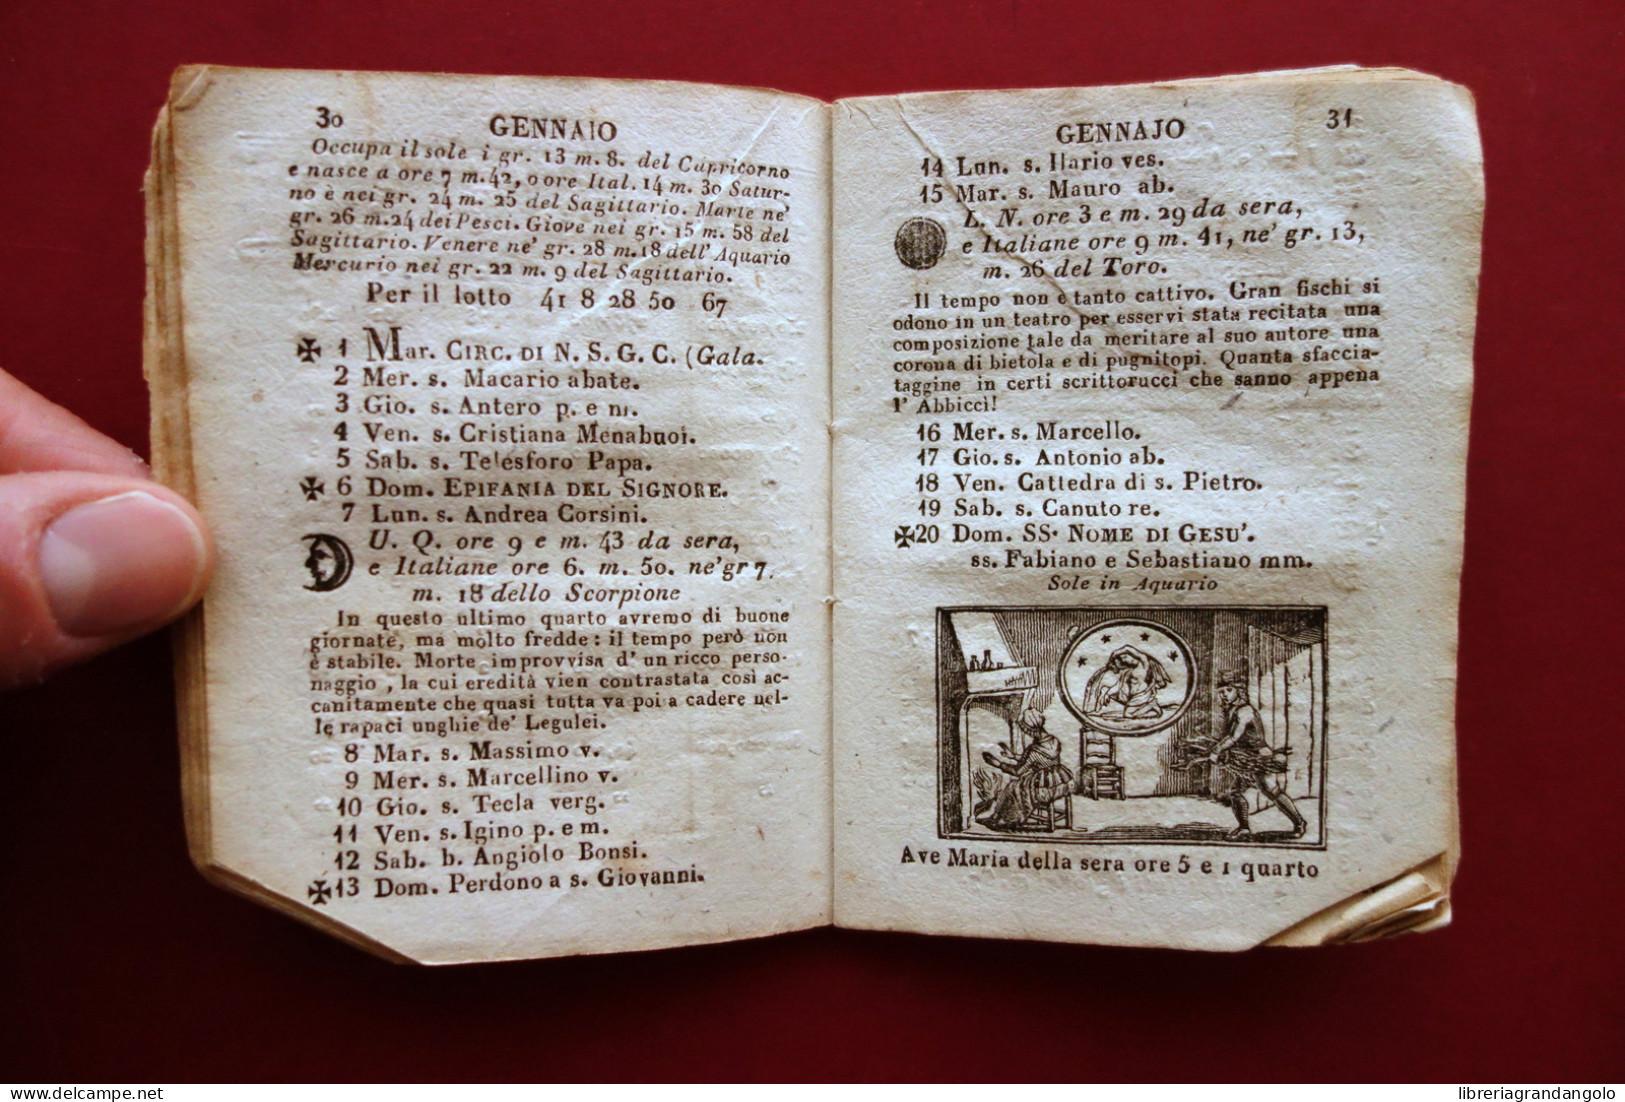 30
GENNAIO
Occupa il sole i gr. 13 m. 8. del Capricorno
e nasce a ore 7 m. 42, o ore Ital. 14 m. 30 Satur-
no è nei gr. 24 m. 25 del Sagittario. Marte ne'
gr. 26 m. 24 dei Pesci. Giove nei gr. 15 m. 58 del
Sagittario. Venere ne' gr. 28 m. 18 dell' Aquario
Mercurio nei gr. 22 m. 9 del Sagittario.
Per il lotto 41 8 28 50 67
✠ 1 Mar. CIRC. DI N. S. G. C. (Gala.
2 Mer. s. Macario abate.
3 Gio. s. Antero p. e m.
4 Ven. s. Cristiana Menabuoi.
5 Sab. s. Telesforo Papa.
✠ 6 Dom. EPIFANIA DEL SIGNORE.
7 Lun. s. Andrea Corsini.
U. Q. ore 9 e m. 43 da sera,
e Italiane ore 6. m. 50. ne' gr 7.
m. 18 dello Scorpione
In questo ultimo quarto avremo di buone
giornate, ma molto fredde : il tempo però non
è stabile. Morte improvvisa d' un ricco perso-
naggio , la cui eredità vien contrastata così ac-
canitamente che quasi tutta va poi a cadere nel-
le rapaci unghie de' Legulei.
8 Mar. s. Massimo v.
9 Mer. s. Marcellino v.
10 Gio. s. Tecla verg.
11 Ven. s. Igino p. e m.
12 Sab. b. Angiolo Bonsi.
✠ 13 Dom. Perdono a s. Giovanni.
GENNAJO
31
14 Lun. s. Ilario ves.
15 Mar. s. Mauro ab.
L. N. ore 3 e m. 29 da sera,
e Italiane ore 9 m. 41, ne' gr. 13,
m. 26 del Toro.
Il tempo non è tanto cattivo. Gran fischi si
odono in un teatro per esservi stata recitata una
composizione tale da meritare al suo autore una
corona di bietola e di pugnitopi. Quanta sfaccia-
taggine in certi scrittorucci che sanno appena
l' Abbiccì!
16 Mer. s. Marcello.
17 Gio. s. Antonio ab.
18 Ven. Cattedra di s. Pietro.
19 Sab. s. Canuto re.
✠20 Dom. SS. NOME DI GESU'.
ss. Fabiano e Sebastiano mm.
Sole in Aquario
Ave Maria della sera ore 5 e 1 quarto
delcampe.net
libreriagrandangolo